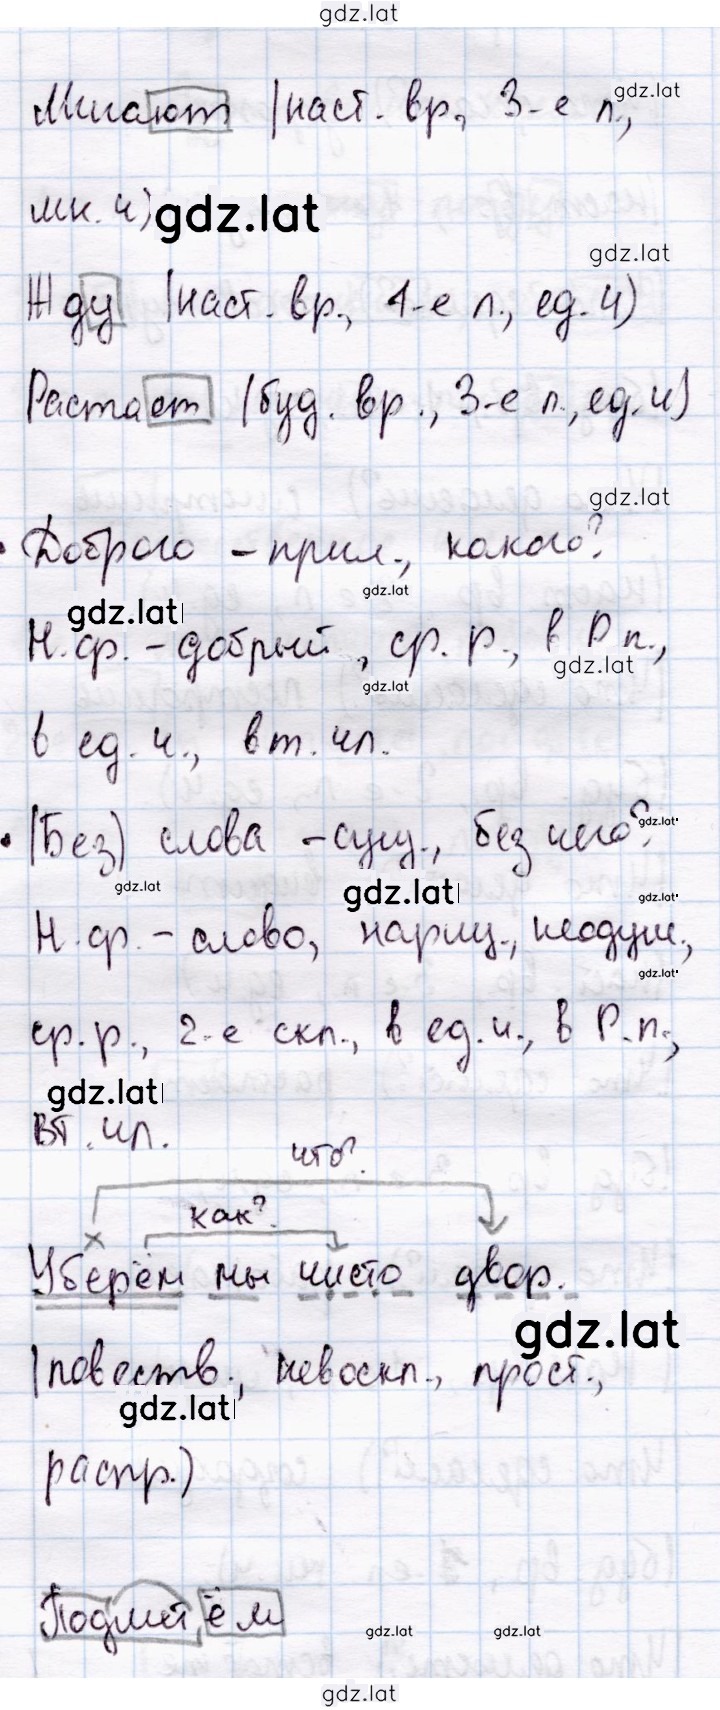 gdz.lat
Мигают (наст. вр., 3-е л., gdz.lat
мн. ч) gdz.lat
gdz.lat
Жду (наст. вр., 1-е л., ед. ч)
Растает (буд. вр., 3-е л., ед. ч)
gdz.lat
• Доброго – прил., какого?
gdz.lat gdz.lat
Н. ф. – добрый, ср. р., в Р п.,
gdz.lat
gdz.lat
в ед. ч., вт. чл.
• (Без) слова – сущ., без чего? gdz.lat
gdz.lat gdz.lat gdz.lat
Н. ф. – слово, нариц., неодуш.,
gdz.lat
ср. р., 2-е скл., в ед. ч., в Р. п.,
gdz.lat
вт. чл.
что?
как?
х
Уберём мы чисто двор.
gdz.lat
(повеств., невоскл., прост.,
gdz.lat
распр.)
Подметём
gdz.lat gdz.lat
gdz.lat